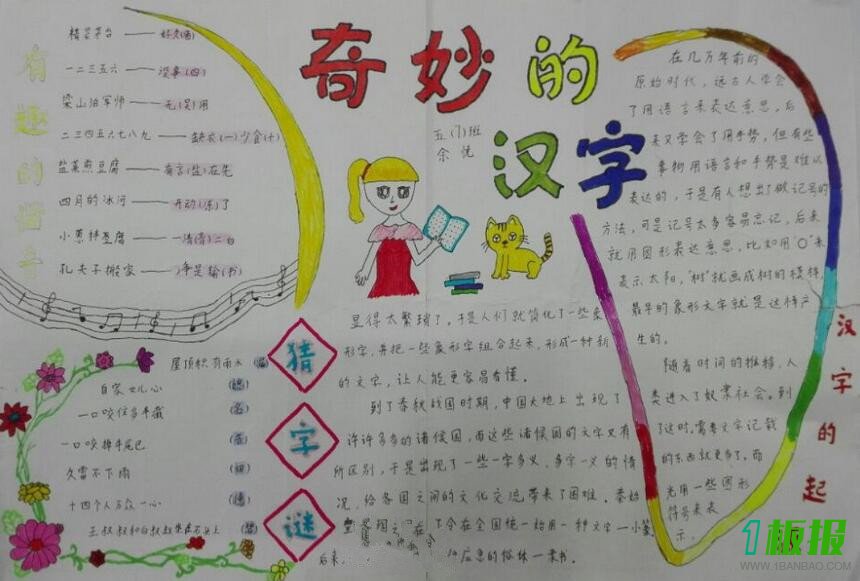 奇妙的
汉字
五(1)班
有趣的谐
精装茅台——好久(酒)
一二三五六——没事(四)
梁山泊军师——无(吴)用
二三四五六七八九——缺衣(一)少食(十)
盐煮煎豆腐——有言(盐)在先
四月的冰河——开动(冻)了
小葱拌豆腐——一清(青)二白
孔夫子搬家——净是输(书)
猜
字
谜
屋顶积有雨水
自家女儿心
一口咬住多半截
一口咬掉牛尾巴
久雷不下雨
十四个人万众一心
王叔叔和白叔叔坐在石头上
汉字的起
在几万年前的
原始时代,远古人学会
了用语言来表达意思,后
来又学会了用手势。但有些
事物用语言和手势是难以
表达的,于是有人想出做记号的
方法,可是记号太多容易忘记,后来
就用图形表达意思,比如用“O”来
表示太阳,“树”就画成树的模样,
最早的象形文字就是这样产
生的。
随着时间的推移,人
类进入了奴隶社会。到
了这时,需要文字记载
的东西就更多了。而
光用一些图形
符号来表
示,
显得太繁琐了。于是人们就简化了一些象
形字,并把一些象形字组合起来,形成一种新
的文字,让人能更容易看懂。
到了春秋战国时期,中国大地上出现了
许许多多的诸侯国,而这些诸侯国的文字又有
所区别,于是出现了一些一字多义,多字一义的情
况,给各国之间的文化交流带来了困难。秦始
了令在全国统一始用一种文字—小篆
后来,
的俗体—隶书。
1板报
WWW.1BANBAO.COM